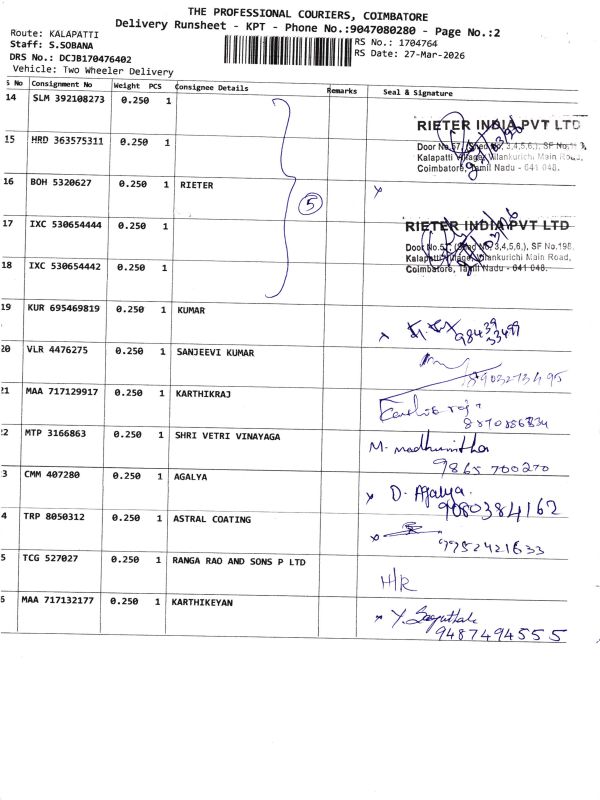 THE PROFESSIONAL COURIERS, COIMBATORE
Delivery Runsheet - KPT - Phone No.:9047080280 - Page No.:2
Route: KALAPATTI
Staff: S.SOBANA
DRS No.: DCJB170476402
Vehicle: Two Wheeler Delivery
RS No.: 1704764
RS Date: 27-Mar-2026
s No Consignment No Weight PCS Consignee Details Remarks Seal & Signature
14 SLM 392108273 0.250 1
RIETER INDIA PVT LTD
Door No.57, (Shed No, 3,4,5,6,), SF No.198,
Kalapatti Village, Vilankurichi Main Road,
Coimbatore, Tamil Nadu - 641 048.
15 HRD 363575311 0.250 1
16 BOH 5320627 0.250 1 RIETER
5
17 IXC 530654444 0.250 1
RIETER INDIA PVT LTD
Door No.57, (Shed No, 3,4,5,6,), SF No.198,
Kalapatti Village, Vilankurichi Main Road,
Coimbatore, Tamil Nadu - 641 048.
18 IXC 530654442 0.250 1
19 KUR 695469819 0.250 1 KUMAR
98439
33499
20 VLR 4476275 0.250 1 SANJEEVI KUMAR
8903273495
21 MAA 717129917 0.250 1 KARTHIKRAJ
22 MTP 3166863 0.250 1 SHRI VETRI VINAYAGA
M. madhumitha
9865700270
3 CMM 407280 0.250 1 AGALYA
D. Agalya.
9080384162
4 TRP 8050312 0.250 1 ASTRAL COATING
9952421633
5 TCG 527027 0.250 1 RANGA RAO AND SONS P LTD
H/R
6 MAA 717132177 0.250 1 KARTHIKEYAN
9487494555